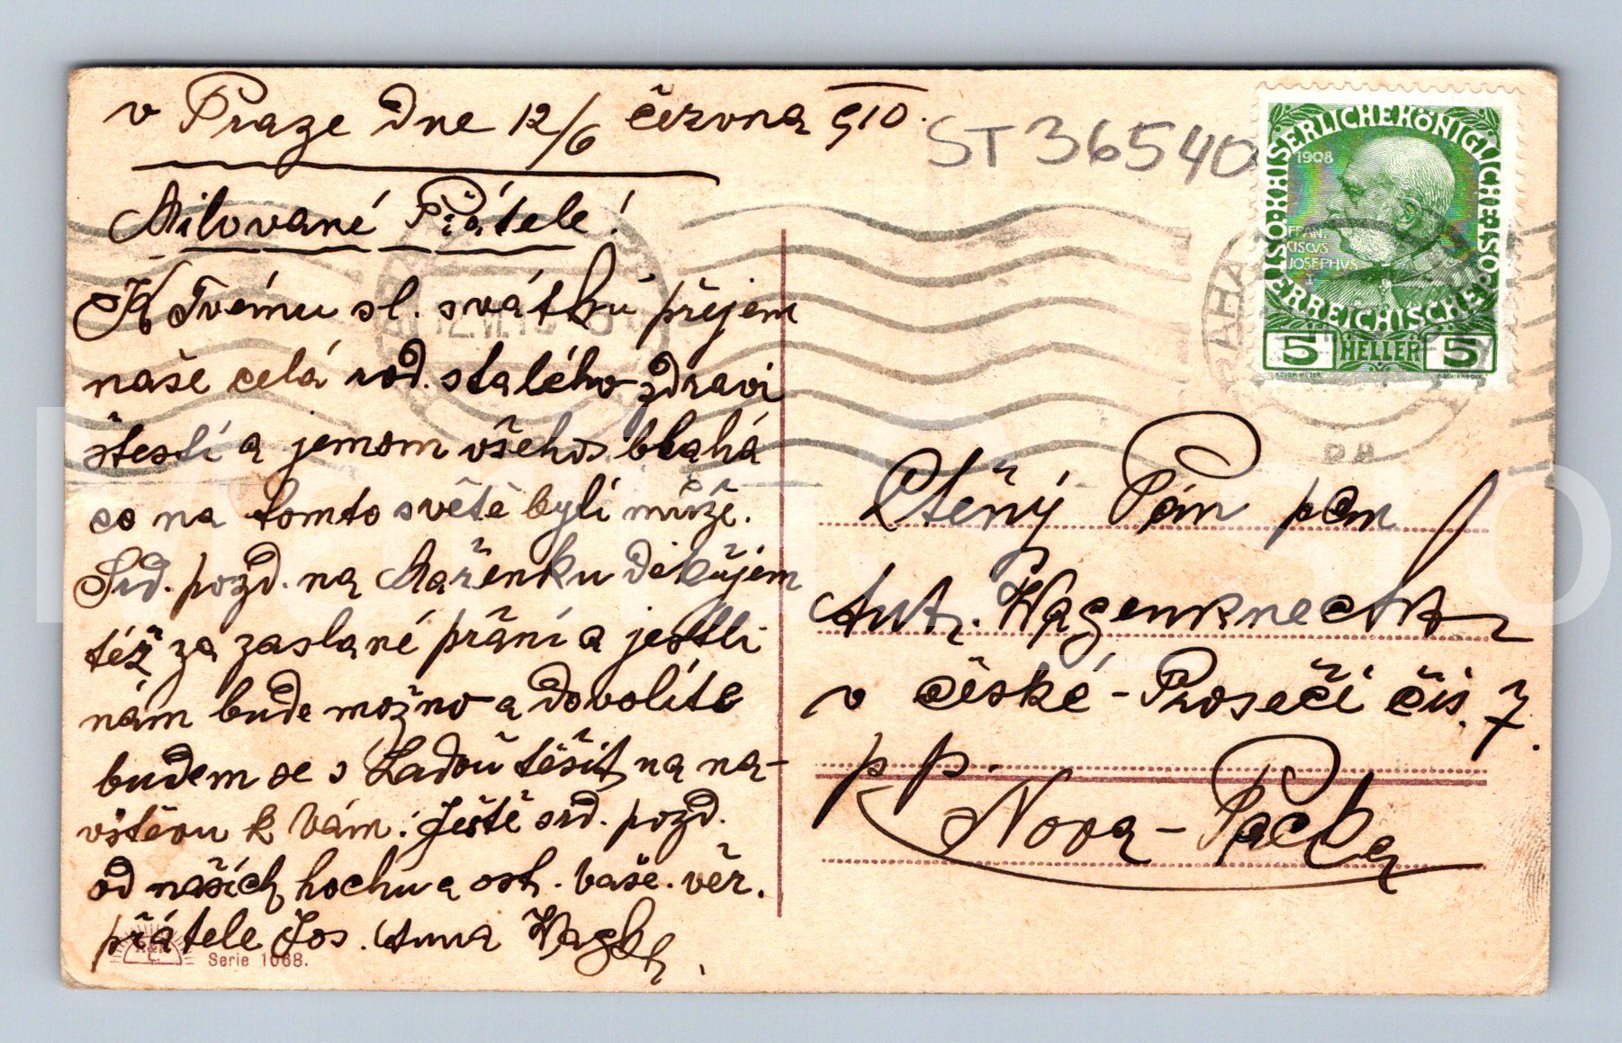 v Praze dne 12/6 června 910.
ST 36540
Milované Přátele!
K Tvému sl. svátku přejem
naše celá rod. stalého zdravi
štestí a jemom všeho blahá
co na tomto světě byli může.
Srd. pozd. na Mařenku děkujem
též za zaslané přání a jestli
nám bude možno a dovolíte
budem se s Ladou těšit na na-
vštěvu k Vám. Ještě srd. pozd.
od našich hochu a ost. vaše. věr.
přátele Jos. Anna
Serie 1068.
KAISERLICHEKÖNIGLICHE ÖSTERREICHISCHE
1908
FRAN
CISCVS
JOSEPHVS
5 HELLER 5
PRAHA
Ctěný Pán pan
Ant. Wagenknecht
v České-Proseči čis. 7.
p p.
Nova-Packa